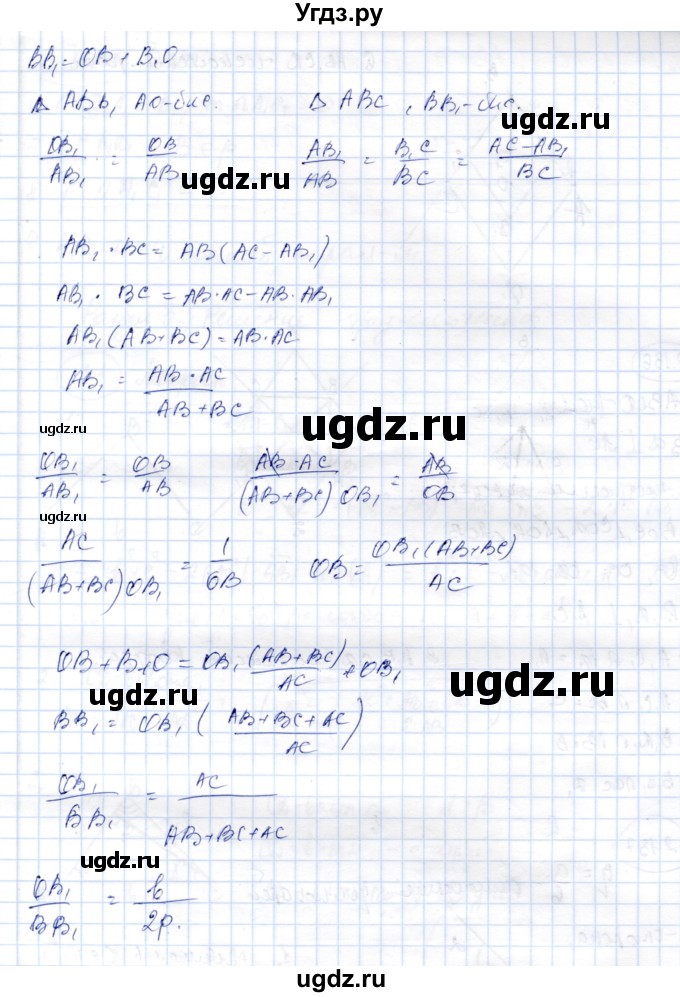 Угдз.ру
BB₁ = OB + B₁O
Δ ABB₁ AO-бис. Δ ABC, BB₁-бис.
OB₁/AB₁ = OB/AB AB₁/AB = B₁C/BC = (AC-AB₁)/BC
ugdz.ru ugdz.ru
AB₁ · BC = AB(AC-AB₁)
AB₁ · BC = AB·AC-AB·AB₁
AB₁(AB+BC) = AB·AC
AB₁ = AB·AC/(AB+BC)
ugdz.ru ugdz.ru
OB₁/AB₁ = OB/AB AB·AC/((AB+BC)OB₁) = AB/OB
ugdz.ru
AC/((AB+BC)OB₁) = 1/OB OB = OB₁(AB+BC)/AC
OB + B₁O = OB₁(AB+BC)/AC + OB₁
ugdz.ru ugdz.ru
BB₁ = OB₁((AB+BC+AC)/AC)
OB₁/BB₁ = AC/(AB+BC+AC)
ugdz.ru
OB₁/BB₁ = b/2p.
ugdz.ru
ugdz.ru